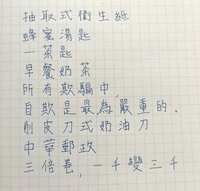 抽取式衛生紙
蜂蜜湯匙
一茶匙
早餐奶茶
所有欺騙中,
自欺是最為嚴重的.
削皮刀式奶油刀
中華郵政
三倍卷,一千變三千